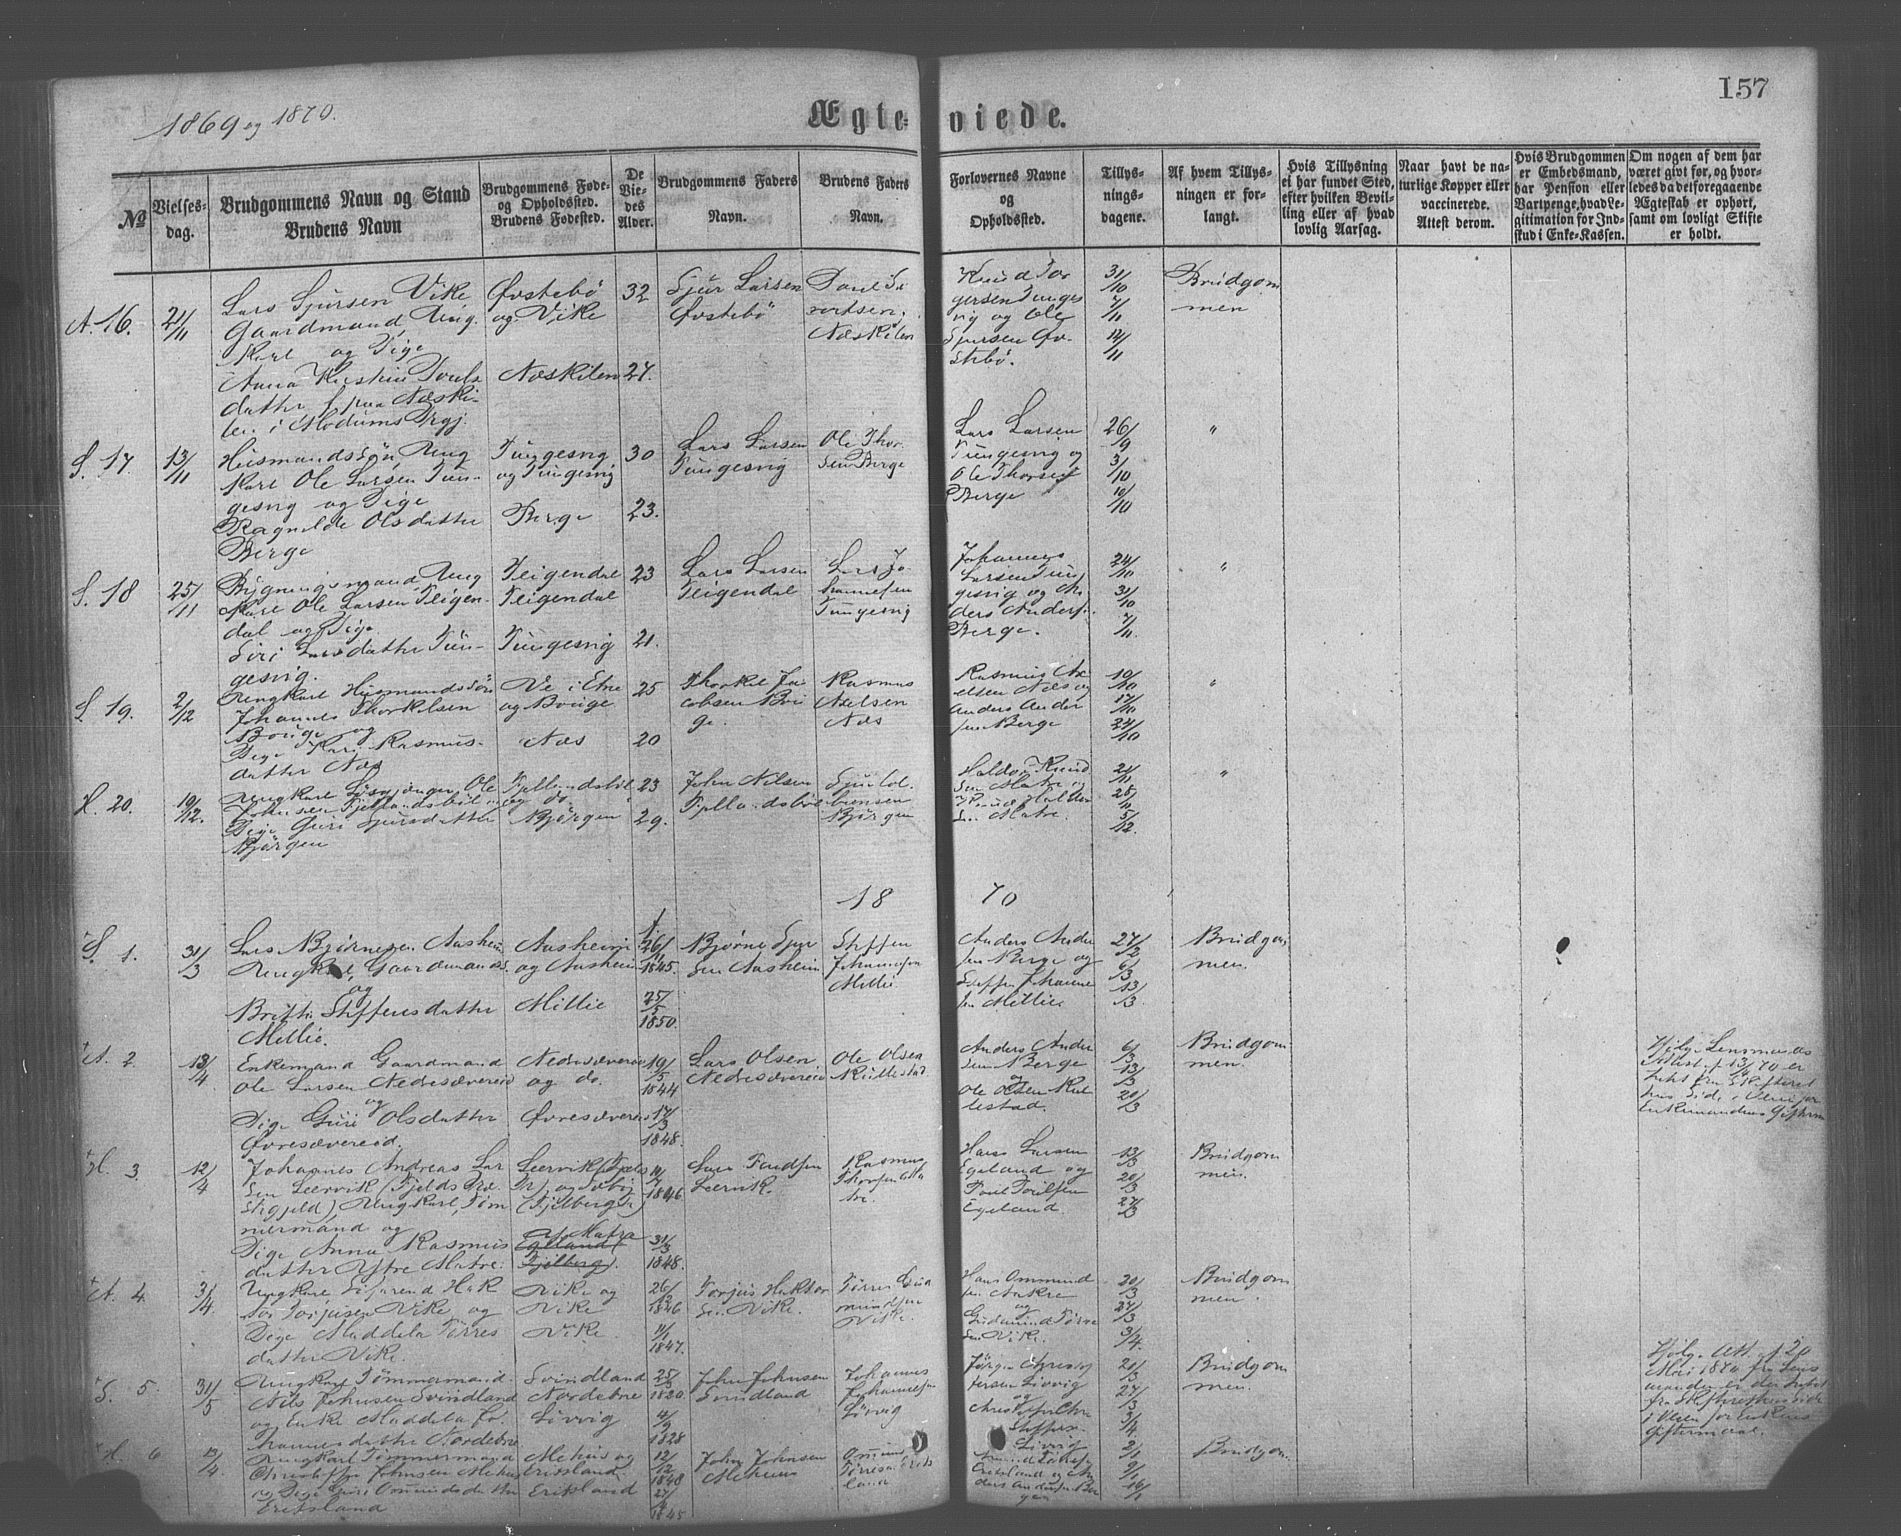 157
1869 og 1870.
Ægte- viede.
№
Vielses-
dag.
Brudgommens Navn og Stand
Brudens Navn
Brudgommens Føde-
og Opholdssted.
Brudens Fødested.
De
Vie-
des
Alder.
Brudgommens Faders
Navn.
Brudens Faders
Navn.
Forlovernes Navne
og
Opholdssted.
Tillys-
nings-
dagene.
Af hvem Tillys-
ningen er for-
langt.
Hvis Tillysning
ei har fundet Sted,
efter hvilken Bevil-
ling eller af hvad
lovlig Aarsag.
Naar havt de na-
turlige Kopper eller
vaccinerede.
Attest derom.
Hvis Brudgommen
er Embedsmand,
har Pension eller
Vartpenge, hvad Le-
gitimation for Ind-
skud i Enke-Kassen.
Om nogen af dem har
været givt før, og hvor-
ledes da det foregaaende
Ægteskab er ophørt,
samt om lovligt Skifte
er holdt.
A. 16.
21/11
Lars Sjursen Vike
Gaardmand, Ung-
karl og Pige
Anna Kirstine Pouls
datter fra Næski-
len i Modums Prgj.
Østebø
og Vike
Næskilen
32
27.
Sjur Larsen
Østebø
Poul
Næskilen
Knud Tor
gersen Tunges
vig og Ole
Sjursen Øv-
stebø.
31/10
7/11
14/11
Brudgom
men
S. 17.
13/11
Husmandssøn, Ung
Karl Ole Larsen Tun-
gesvig og Pige
Ragnilde Olsdatter
Berge
Tungesvig
og Tungesvig
Berge
30
23.
Lars Larsen
Tungesvig
Ole Thor-
sen Berge
Lars Larsen
Tungesvig og
Ole Thorsen
Berge
26/9
3/10
10/10
"
S. 18
25/11
Bygningsmand Ung
Karl Ole Larsen Teigen-
dal og Pige
Siri Larsdatter Tun-
gesvig.
Teigendal
Teigendal
Tungesvig
23
21.
Lars Larsen
Teigendal
Lars Jo-
hannesen
Tungesvig
Johannes
Larsen Tun
gesvig og An
ders Anders.
Berge.
24/10
31/10
7/11
"
S. 19.
2/12
Ungkarl Husmandssøn
Johannes Thorkelsen
Bouge og
Pige Kari Rasmus-
datter Næs
Ve i Etne
og Bouge
Næs
25
20
Thorkel Ja
cobsen Bou
ge.
Rasmus
Axelsen
Næs
Rasmus Ax
elsen Næs og
Anders Ander
sen Berge
10/10
17/10
24/10
"
H. 20.
19/12.
Ungkarl Ole
Johnsen Fjellandsbøl
Pige Guri Sjursdatter
Bjørgen
Fjellandsbøl
og do.
Bjørgen
23
29.
John Nilsen
Fjellandsbøl
Sjur Col-
bensen
Bjørgen
Haldor Knud
sen Matre og
Knud Haldor
sen Matre.
21/11
28/11
5/12.
"
18 70
S. 1.
31/3
Lars Bjørnesen Aasheim
Ungkarl, Gaardmands.
og
Brithe Steffensdatter
Millie.
Aasheim
og Aasheim
Millie
26/11
1845.
25/5
1850.
Bjørne Sjur
sen Aasheim
Steffen
Johannesen
Millie
Anders Ander
sen Berge og
Steffen Johanne
sen Millie
27/2
6/3
13/3
Brudgom
men.
A. 2
13/4
Enkemand Gaardmand
Ole Larsen Nedresævereid
og
Pige Guri Olsdatter
Øvresævereid.
Nedresævereid
og do.
Øvresævereid
19/5
1844
17/3
1848.
Lars Olsen
Nedresævereid
Ole Olsen
Rullestad
Anders Ander
sen Berge
og
Ole Olsen Rul
lestad.
6/3
13/3
20/3
Brudgom
men.
Ifølge Lensmands
Attest af 13/4 70 er
Intet fra Skifteret
tens Side i Veien for
Enkemandens Giftermaal
H. 3
12/4
Johannes Andreas Lar
sen Leervik (Fjelds Præ
stegjeld), Ungkarl, Tøm
mermand og
Pige Anna Rasmus
datter Ytre Matre
1846
31/3
1848.
Leervik.
Rasmus
Thorsen Ma
tre.
Hans Larsen
Egeland og
Poul Poulsen
Egeland.
13/3
20/3
27/3
Brudgom
men.
A. 4
3/4
Ungkarl Sjovend Hak
tor Torjusen Vike og
Pige Maddela Tørres
datter Vike.
Vike og
Vike
Vike
26/12
1846
1847.
Torjus Haktor
sen Vike.
Tørres Gud
mundsen
Vike
Hans Ommund
sen Aakre
og
Gudmund Tørre
sen Vike.
20/3
27/3
3/4.
Brudgom
men.
S. 5.
31/5
Ungkarl Tømmermand
Nils Johnsen Svindland
og Enke Maddela Jo-
hannesdatter Nordebøe
Svindland
Nordebøe
Løvvig
1820.
4/9
1828
John Johnsen
Svindland
Johannes
Johannesen
Løvvig
Jørgen Christof
fersen Løvvig
og
Løvvig
20/3
27/3
3/4.
Brudgom
men.
Ifølg. Att. af 20
Mai 1870 fra Lens
manden er der Intet
fra Skifterettens Side
i Veien for Enkens
Giftermaal.
H. 6
13/4
Ungkarl Tømmermand
Christoffer Johnsen Mehus
og Pige Guri Omundsdatter
Eriksland
Mehus og
Eriksland.
Eriksland
12/12
1848
1845
John Johnsen
Mehuus
Omund
Tørresen Eriks
land
Eriksland og An
ders Andersen Ber
gen
2/1
9/1
16/1
Brudgom.